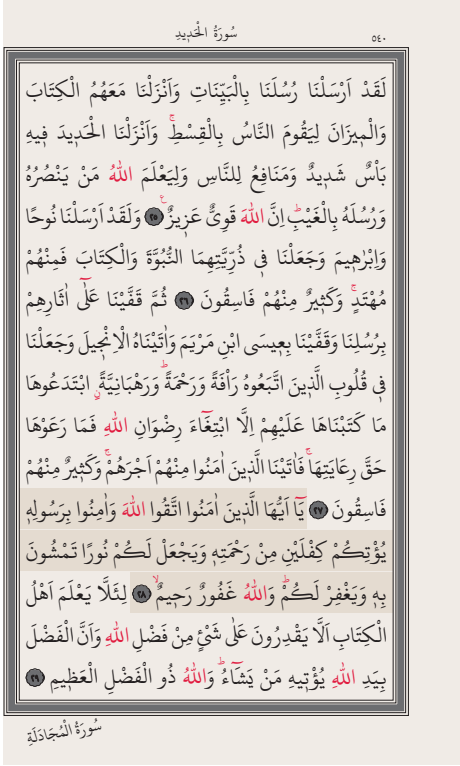 سُورَةُ الْحَدِيدِ ٥٤٠
لَقَدْ اَرْسَلْنَا رُسُلَنَا بِالْبَيِّنَاتِ وَاَنْزَلْنَا مَعَهُمُ الْكِتَابَ
وَالْمِيزَانَ لِيَقُومَ النَّاسُ بِالْقِسْطِۚ وَاَنْزَلْنَا الْحَدِيدَ فِيهِ
بَأْسٌ شَدِيدٌ وَمَنَافِعُ لِلنَّاسِ وَلِيَعْلَمَ اللّٰهُ مَنْ يَنْصُرُهُ
وَرُسُلَهُ بِالْغَيْبِۜ اِنَّ اللّٰهَ قَوِيٌّ عَزِيزٌ ﴿٢٥﴾ وَلَقَدْ اَرْسَلْنَا نُوحًا
وَاِبْرٰهِيمَ وَجَعَلْنَا فِي ذُرِّيَّتِهِمَا النُّبُوَّةَ وَالْكِتَابَ فَمِنْهُمْ
مُهْتَدٍۚ وَكَثِيرٌ مِنْهُمْ فَاسِقُونَ ﴿٢٦﴾ ثُمَّ قَفَّيْنَا عَلٰٓى اٰثَارِهِمْ
بِرُسُلِنَا وَقَفَّيْنَا بِعِيسَى ابْنِ مَرْيَمَ وَاٰتَيْنَاهُ الْاِنْجِيلَ وَجَعَلْنَا
فِي قُلُوبِ الَّذِينَ اتَّبَعُوهُ رَأْفَةً وَرَحْمَةًۜ وَرَهْبَانِيَّةًۨ ابْتَدَعُوهَا
مَا كَتَبْنَاهَا عَلَيْهِمْ اِلَّا ابْتِغَٓاءَ رِضْوَانِ اللّٰهِ فَمَا رَعَوْهَا
حَقَّ رِعَايَتِهَاۚ فَاٰتَيْنَا الَّذِينَ اٰمَنُوا مِنْهُمْ اَجْرَهُمْۚ وَكَثِيرٌ مِنْهُمْ
فَاسِقُونَ ﴿٢٧﴾ يَٓا اَيُّهَا الَّذِينَ اٰمَنُوا اتَّقُوا اللّٰهَ وَاٰمِنُوا بِرَسُولِهِ
يُؤْتِكُمْ كِفْلَيْنِ مِنْ رَحْمَتِهِ وَيَجْعَلْ لَكُمْ نُورًا تَمْشُونَ
بِهِ وَيَغْفِرْ لَكُمْۜ وَاللّٰهُ غَفُورٌ رَحِيمٌۙ ﴿٢٨﴾ لِئَلَّا يَعْلَمَ اَهْلُ
الْكِتَابِ اَلَّا يَقْدِرُونَ عَلٰى شَيْءٍ مِنْ فَضْلِ اللّٰهِ وَاَنَّ الْفَضْلَ
بِيَدِ اللّٰهِ يُؤْتِيهِ مَنْ يَشَٓاءُۜ وَاللّٰهُ ذُو الْفَضْلِ الْعَظِيمِ ﴿٢٩﴾
سُورَةُ الْمُجَادَلَةِ